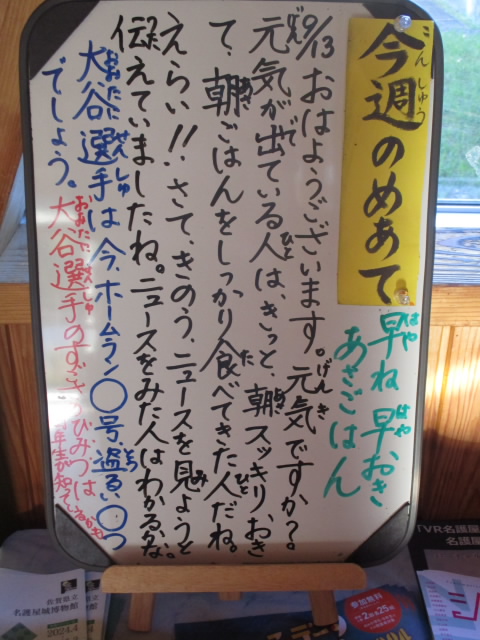 今週のめあて
こんしゅう
早ね 早おき
はや はや
あさごはん
9/13 おはようございます。元気ですか?
げんき
元気が出ている人は、きっと、朝スッキリおき
げんき で ひと あさ
て、朝ごはんをしっかり食べてきた人だね。
あさ た ひと
えらい!!さて、きのう、ニュースを見ようと
み
伝えていましたね。ニュースをみた人はわかるかな。
つた
大谷選手は今、ホームラン〇号、盗るい〇つ
おおたにせんしゅ
でしょう。
大谷選手のすごさのひみつは
おおたに
佐賀県立
名護屋城博物館
2024.4
参加無料